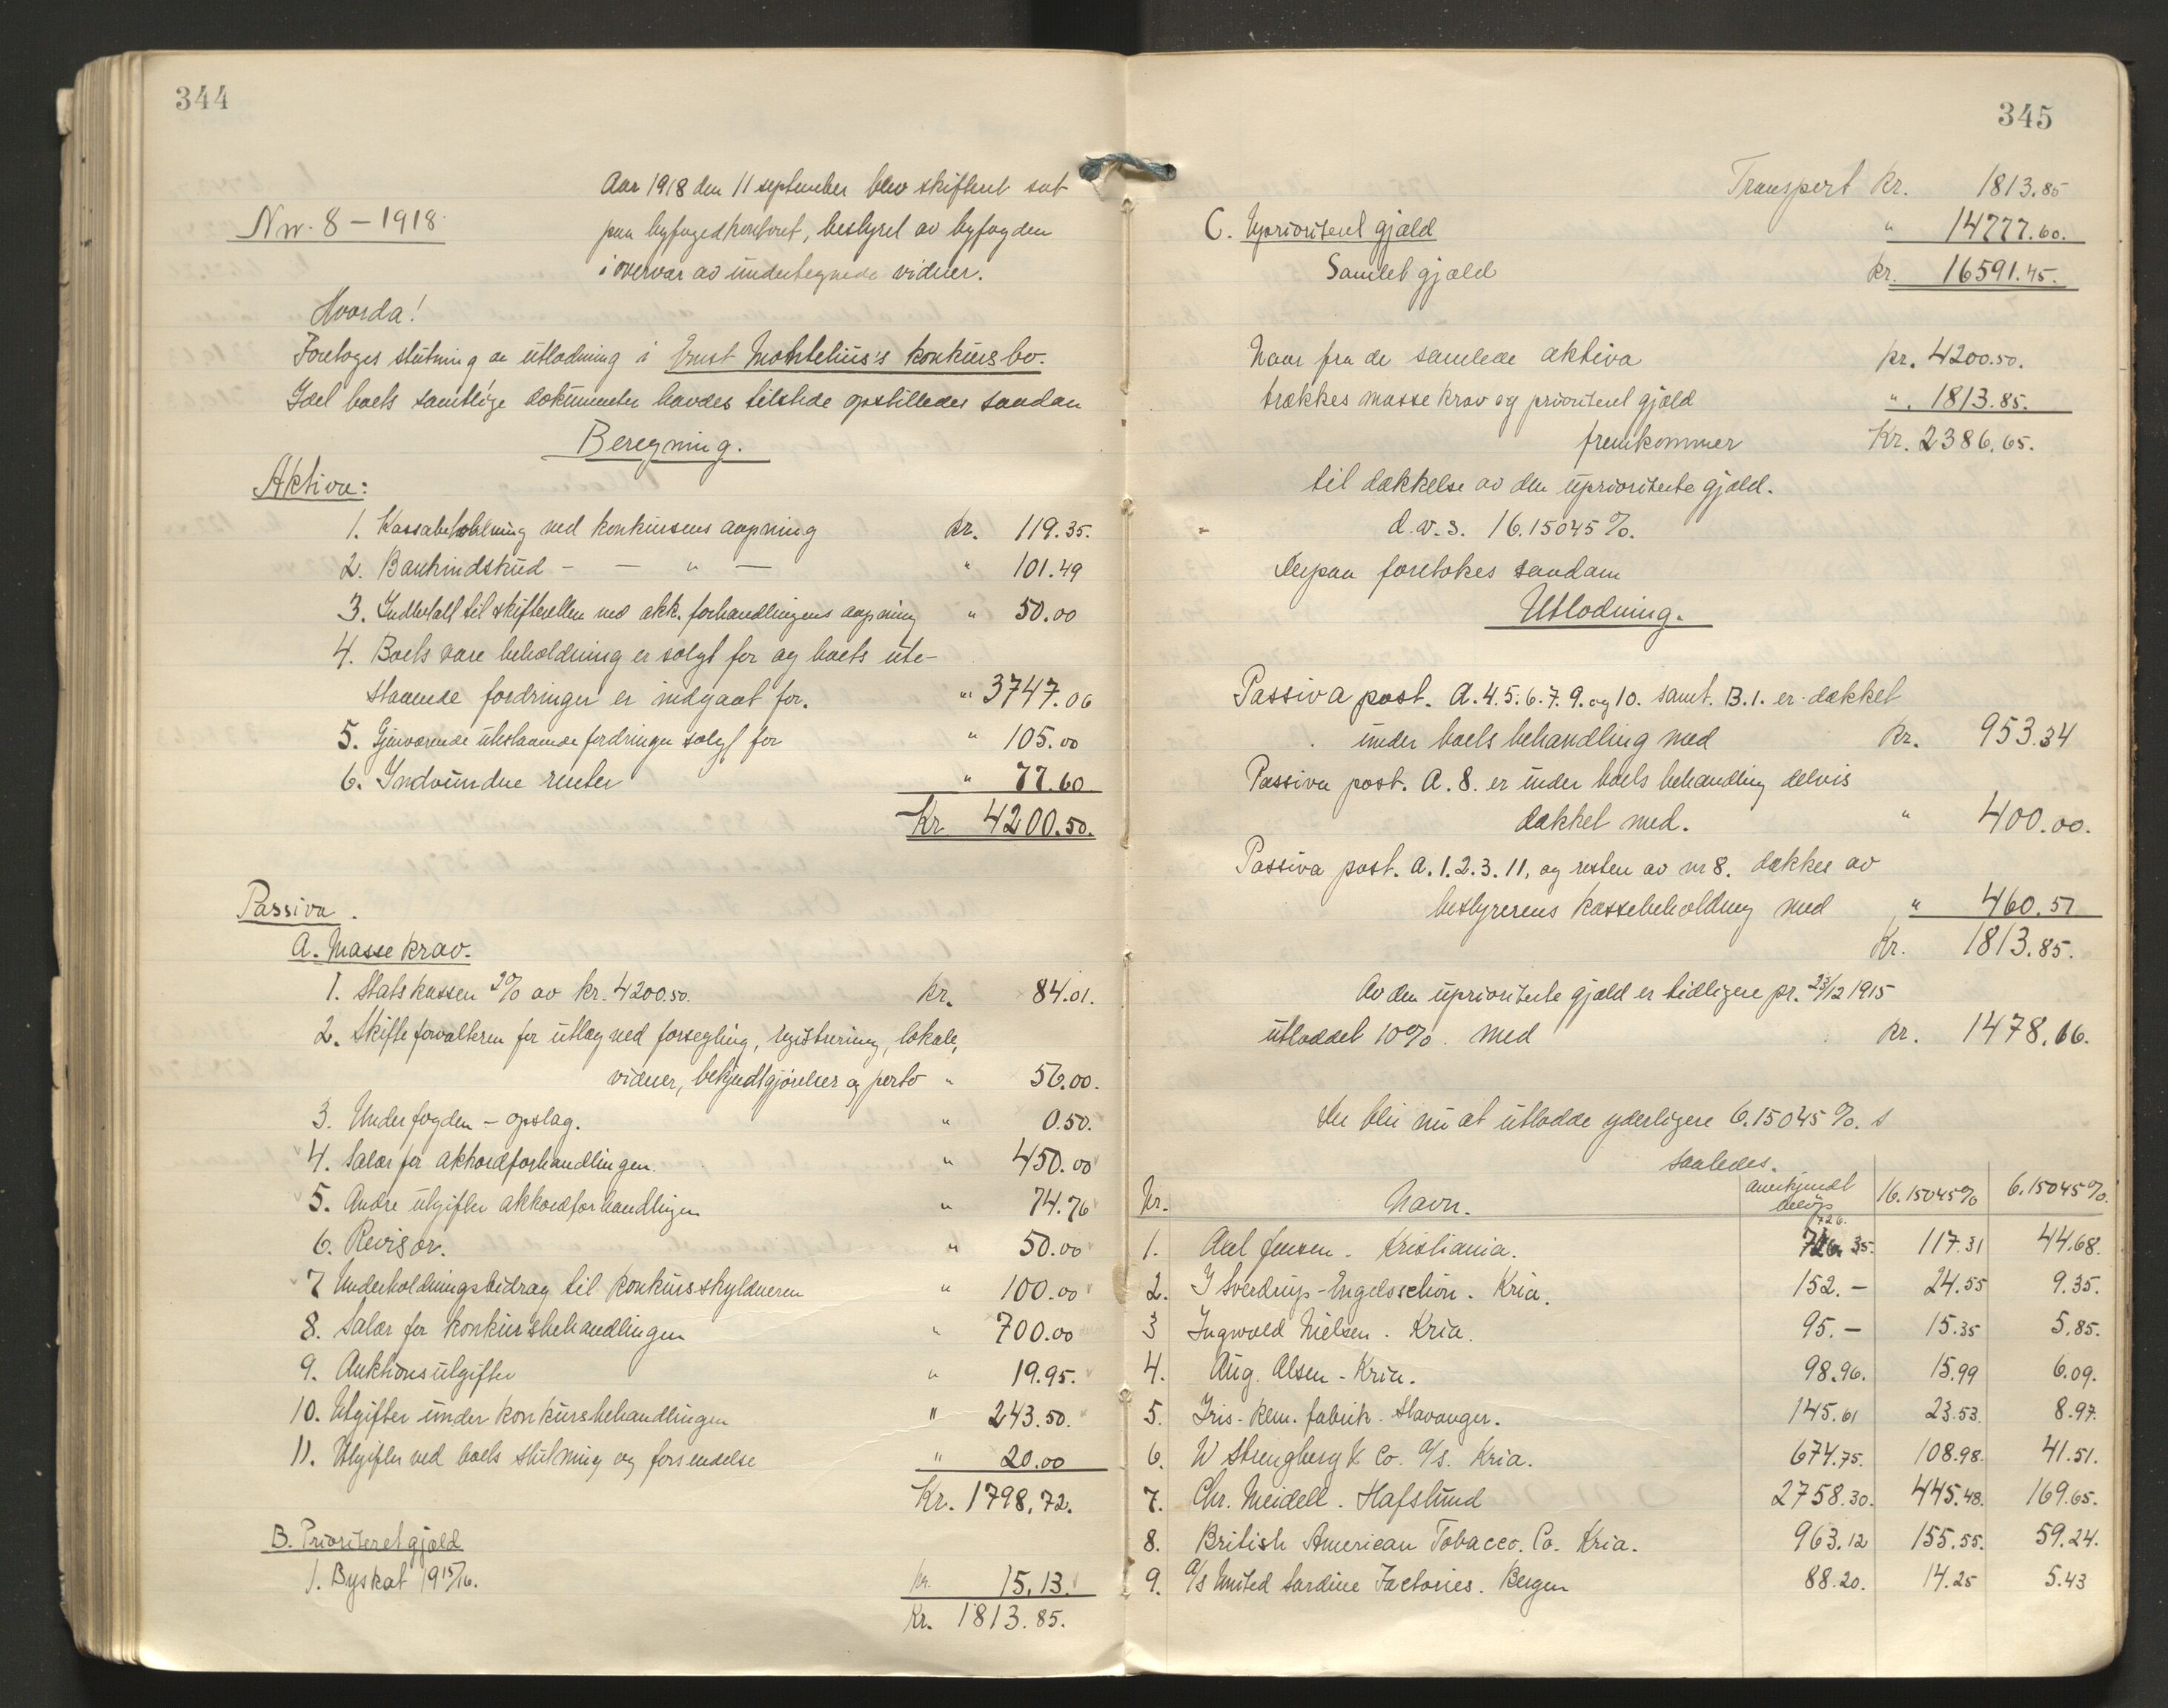 344
Aar 1918 den 11 september blev skifteret sat
Nr. 8 – 1918.
paa byfogedkontoret, bestyret av byfogden
i overvær av undertegnede vidner.
Hvorda!
Foretoges slutning og utlodning i Ernst Mohtelius's konkursbo.
Idet boets samtlige dokumenter havdes tilstede opstilledes saadan
Beregning.
Aktiva:
1. Kassabeholdning ved konkursens aapning kr. 119.35.
2. Bankindskud – — " — " 101.49
3. Indbetalt til skifteretten ved akk. forhandlingens aapning " 50.00
4. Boets vare beholdning er solgt for og boets ute-
staaende fordringer er indgaat for. " 3747.06
5. Gjenværende utestaaende fordringer solgt for " 105.00
6. Indvundne renter " 77.60
Kr 4200.50.
Passiva.
A. Masse krav.
1. Statskassen 2% av kr. 4200.50. kr. 84.01.
2. Skifteforvalteren for utlæg ved forsegling, registrering, lokale,
vidner, bekjendtgjørelser og porto " 56.00.
3. Underfogden – opslag. " 0.50.
4. Salær for akkordforhandlingen. " 450.00
5. Andre utgifter akkordforhandlingen " 74.76
6. Revisor. " 50.00
7 Underholdningsbidrag til konkursskyldneren " 100.00
8. Salær for konkursbehandlingen " 700.00
9. Auktionsutgifter " 19.95.
10. Utgifter under konkursbehandlingen " 243.50.
11. Utgifter ved boets slutning og forsendelse " 20.00
Kr. 1798.72.
B. Prioritert gjæld
1. Byskat 1915/16. kr. 15.13.
Kr. 1813.85.
345
Transport kr. 1813.85
C. Uprioritert gjæld " 14777.60.
Samlet gjæld kr. 16591.45.
Naar fra de samlede aktiva kr. 4200.50.
trækkes masse krav og prioritert gjæld ". 1813.85.
fremkommer Kr. 2386.65.
til dækkelse av den uprioriterte gjæld.
d.v.s. 16.15045 %.
Derpaa foretokes saadan
Utlodning.
Passiva post. A. 4. 5. 6. 7. 9. og 10. samt. B. 1. er dækket
under boets behandling med kr. 953.34
Passiva post. A. 8. er under boets behandling delvis
dækket med. " 400.00.
Passiva post. A. 1. 2. 3. 11, og resten av nr 8. dækkes av
bestyrerens kassebeholdning med " 460.51
Kr. 1813.85.
Av den uprioriterte gjæld er tidligere pr. 23/12 1915
utloddet 10%. med kr. 1478.66.
Der blir nu at utlodde yderligere 6.15045 %.
saaledes.
Nr. Navn. anerkjendt beløp 16.15045% 6.15045%.
1. Axel Jensen. Kristiania. 726.35. 117.31 44.68.
2. J Sverdrup-Engelsschion. Kria. 152.– 24.55 9.35.
3 Ingwald Nielsen. Kria. 95.– 15.35 5.85.
4. Aug. Olsen – Kria. 98.96. 15.99 6.09.
5. Iris – klem. fabrik. Stavanger. 145.61 23.53. 8.97.
6. W Strengberg & Co. A/S. Kria. 674.75. 108.98. 41.51.
7. Chr. Meidell. Hafslund 2758.30. 445.48. 169.65.
8. British American Tobacco. Co. Kria. 963.12 155.55. 59.24.
9. A/s United Sardine Factories. Bergen 88.20. 14.25 5.43